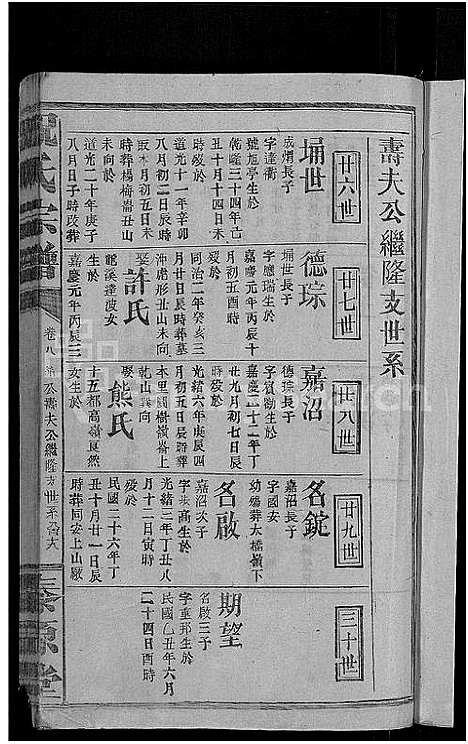 壽夫公繼隆支世系
廿六世
埇世
成烱長子
字達衢
號旭亭生於
乾隆三十四年己
丑十月十四日未
時歿於
道光十一年辛卯
八月初二日辰時
未向於
道光二十年庚子
八月日子時改葬
廿七世
德琮
埇世長子
字應瑞生於
嘉慶元年丙辰十
月初五日
歿於
同治二年癸亥三
月廿日辰時葬墓
沖虎形丑山未向
娶
許氏
龍溪達波女
生於
嘉慶元年丙辰三
廿八世
嘉沼
德琮長子
字賓衡生於
嘉慶二十二年丁
丑九月初七日辰
時歿於
光緒六年庚辰四
月初五日辰時葬
本里團樹嶺崙上
乾山巽向
娶
熊氏
十五都高嶺良然
女生於
廿九世
名錠
嘉沼長子
字國安
幼殤葬太極嶺下
名啟
嘉沼次子
字步高生於
光緒三年丁丑八
月十二日寅時
歿於
民國二十六年丁
丑十月廿一日辰
時葬同安上山廠
三十世
期望
名啟三子
字垂邦生於
民國乙丑年六月
二十四日酉時
氏宗譜
卷八
公壽夫公繼隆支世系
源堂